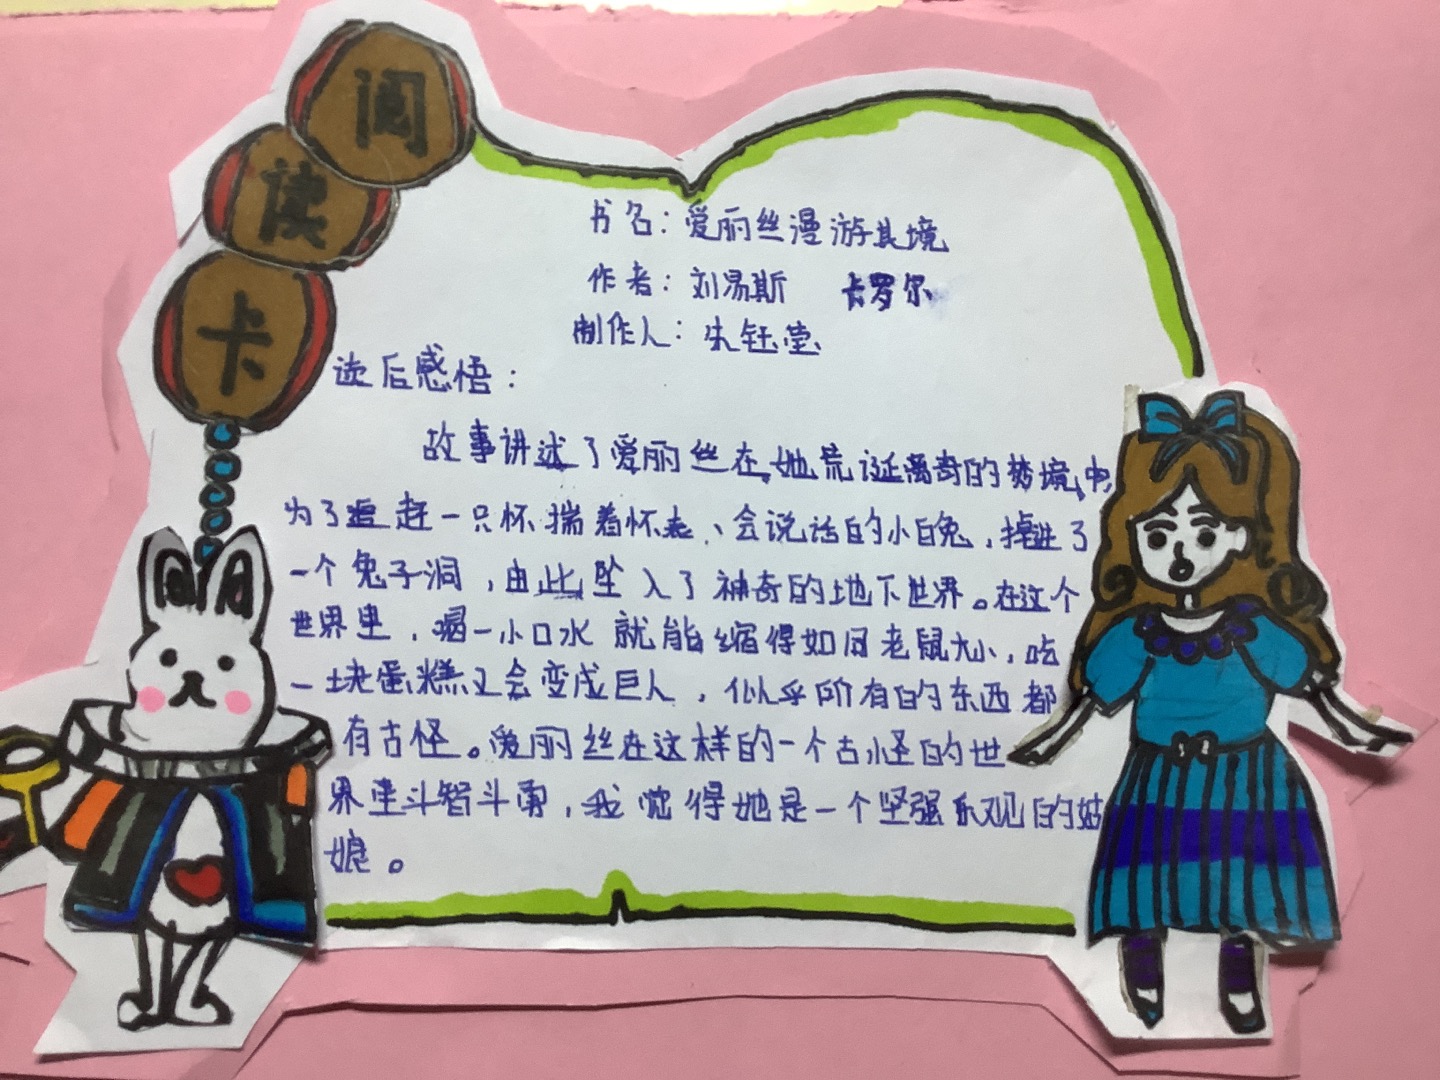 阅
读
卡
书名：爱丽丝漫游其境
作者：刘易斯 卡罗尔
制作人：朱钰莹
读后感悟：
故事讲述了爱丽丝在她荒诞离奇的梦境中，
为了追赶一只怀揣着怀表、会说话的小白兔，掉进了
一个兔子洞，由此坠入了神奇的地下世界。在这个
世界里，喝一小口水就能缩得如同老鼠大小，吃
一块蛋糕又会变成巨人，似乎所有的东西都
有古怪。爱丽丝在这样的一个古怪的世
界里斗智斗勇，我觉得她是一个坚强乐观的姑
娘。